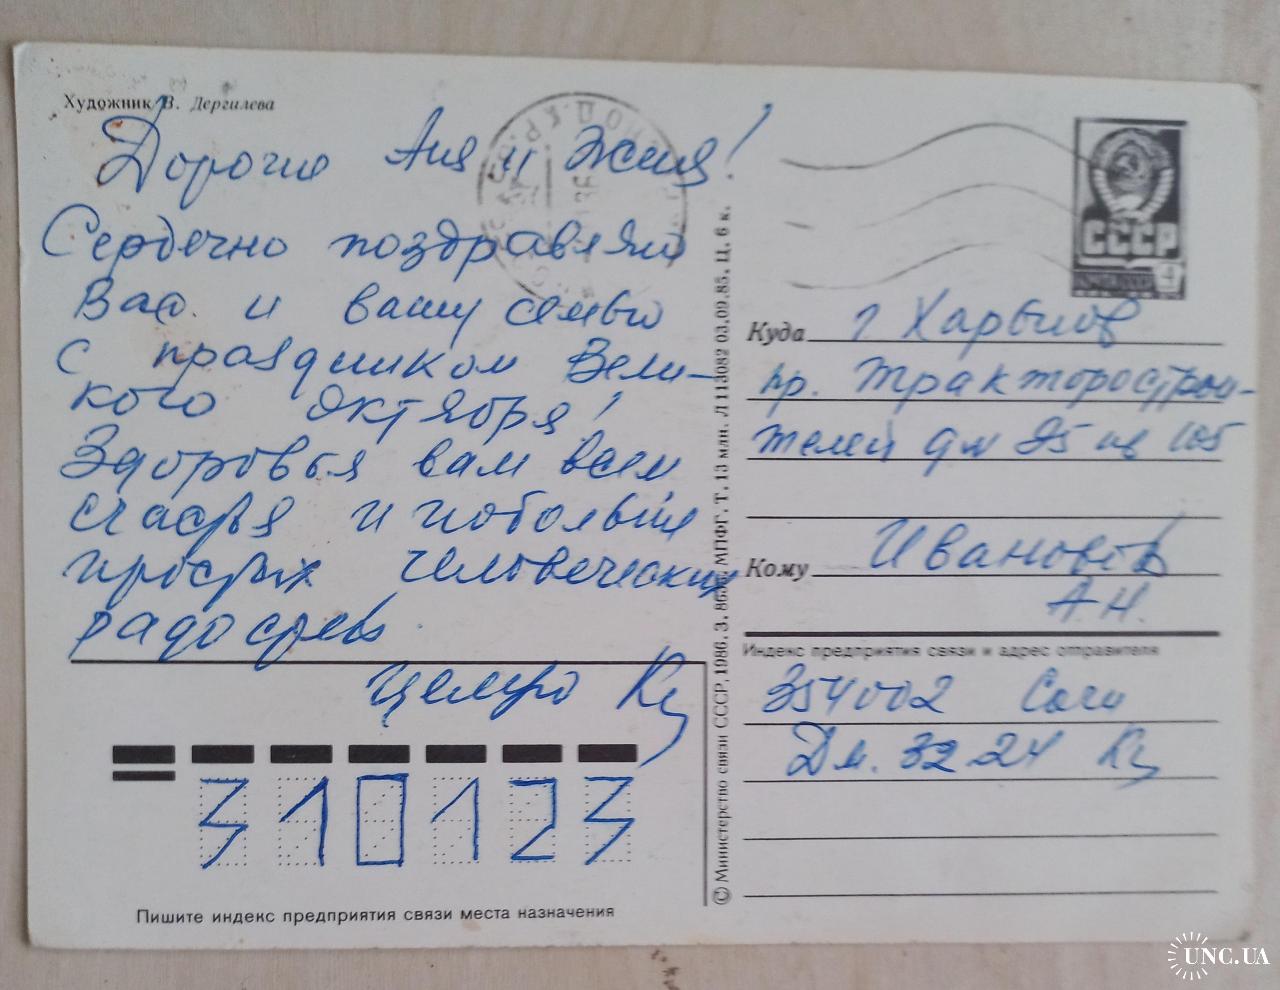 Художник В. Дергилева
Дорогие Аня и Женя!
Сердечно поздравляю
Вас и вашу семью
с праздником Вели-
кого Октября!
Здоровья вам всем
счастья и побольше
простых человеческих
радостей.
Целую
СССР
ПОЧТА СССР
4
Куда г Харьков
пр. Тракторострои-
телей дм 95 кв 105
Кому Иванов
А Н.
Индекс предприятия связи и адрес отправителя
354002 Сочи
Дм. 32 24
310123
Пишите индекс предприятия связи места назначения
© Министерство связи СССР, 1986. З. МПФГ. Т. 13 млн. Л 113082 03.09.85. Ц. 6 к.
UNC.UA